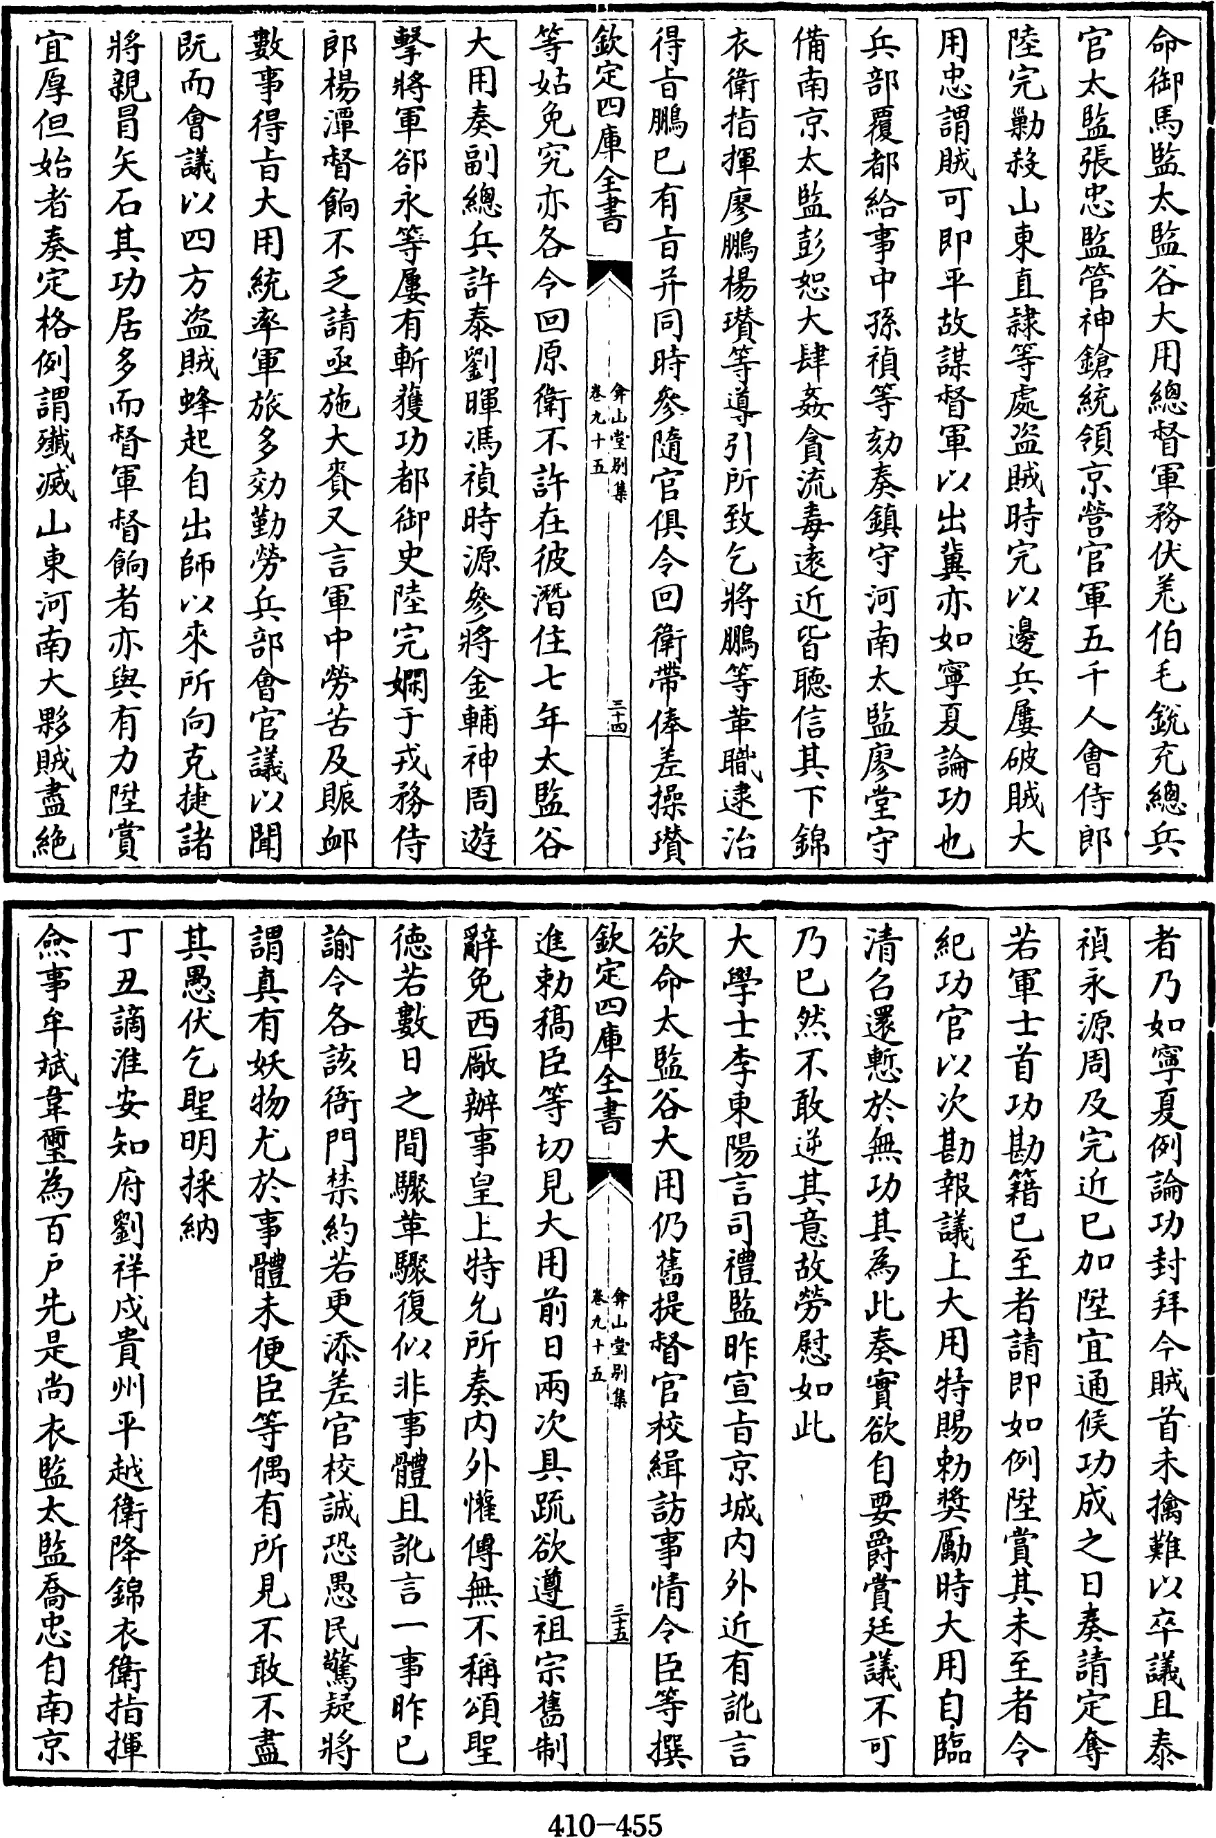 命御馬監太監谷大用總督軍務伏羌伯毛銳充總兵
官太監張忠監管神鎗統領京營官軍五千人會侍郎
陸完勦殺山東直隷等處盗賊時完以邊兵屢破賊大
用忠謂賊可即平故謀督軍以出冀亦如寧夏論功也
兵部覆都給事中孫禎等劾奏鎮守河南太監廖堂守
備南京太監彭恕大肆姦貪流毒遠近皆聽信其下錦
衣衛指揮廖鵬楊瓚等導引所致乞將鵬等革職逮治
得㫖鵬已有㫖并同時參隨官俱令回衛帶俸差操瓚
欽定四庫全書
弇山堂别集
卷九十五
三十四
等姑免究亦各令回原衛不許在彼潛住七年太監谷
大用奏副總兵許泰劉暉馮禎時源參將金輔神周遊
擊將軍郤永等屢有斬獲功都御史陸完嫻于戎務侍
郎楊潭督餉不乏請亟施大賚又言軍中勞苦及賑䘏
數事得㫖大用統率軍旅多効勤勞兵部會官議以聞
既而會議以四方盗賊蜂起自出師以來所向克捷諸
將親冒矢石其功居多而督軍督餉者亦與有力陞賞
宜厚但始者奏定格例謂殲滅山東河南大夥賊盡絶
者乃如寧夏例論功封拜今賊首未擒難以卒議且泰
禎永源周及完近已加陞宜通候功成之日奏請定奪
若軍士首功勘籍已至者請即如例陞賞其未至者令
紀功官以次勘報議上大用特賜勅奬厲時大用自臨
清召還慙於無功其為此奏實欲自要爵賞廷議不可
乃已然不敢逆其意故勞慰如此
大學士李東陽言司禮監昨宣㫖京城内外近有訛言
欲命太監谷大用仍舊提督官校緝訪事情令臣等撰
欽定四庫全書
弇山堂别集
卷九十五
三十五
進勅稿臣等切見大用前日兩次具疏欲遵祖宗舊制
辭免西厰辦事皇上特允所奏内外懽傳無不稱頌聖
德若數日之間驟革驟復似非事體且訛言一事昨已
諭令各該衙門禁約若更添差官校誠恐愚民驚疑將
謂真有妖物尤於事體未便臣等偶有所見不敢不盡
其愚伏乞聖明採納
丁丑謫淮安知府劉祥戍貴州平越衛降錦衣衛指揮
僉事牟斌韋璽為百户先是尚衣監太監喬忠自南京
410-455